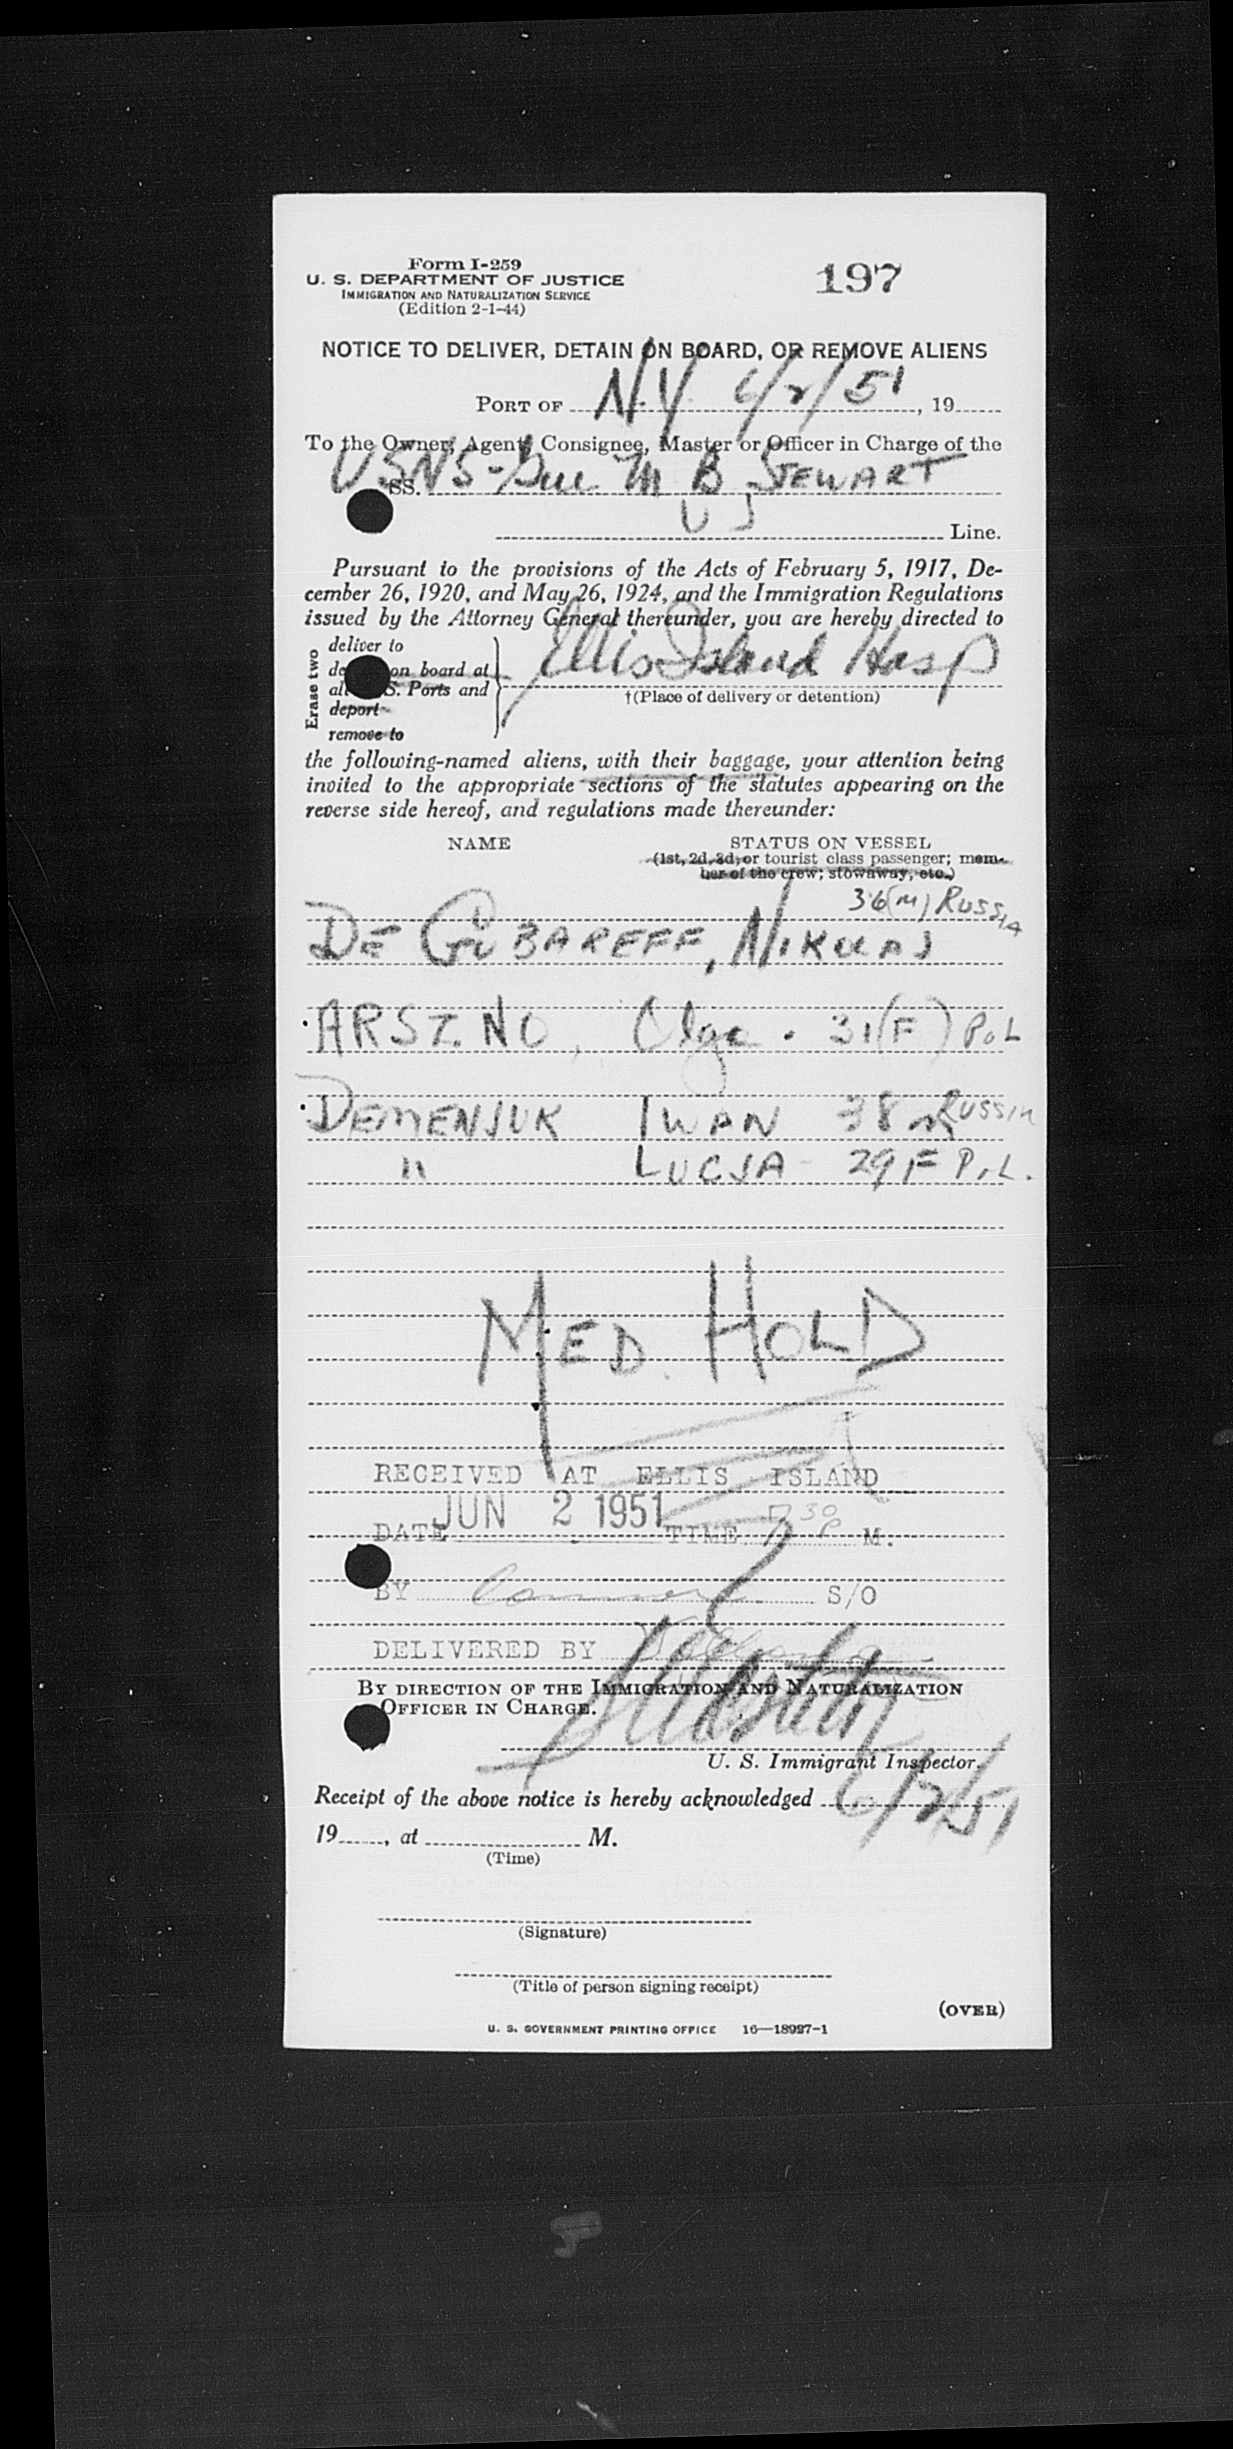 Form I-259
U. S. DEPARTMENT OF JUSTICE
IMMIGRATION AND NATURALIZATION SERVICE
(Edition 2-1-44)
197
NOTICE TO DELIVER, DETAIN ON BOARD, OR REMOVE ALIENS
PORT OF N.Y. 6/2/51, 19
To the Owner, Agent, Consignee, Master or Officer in Charge of the
SS. USNS - Gen M B STEWART
US Line.
Pursuant to the provisions of the Acts of February 5, 1917, De-
cember 26, 1920, and May 26, 1924, and the Immigration Regulations
issued by the Attorney General thereunder, you are hereby directed to
Erase two
deliver to
on board at
S. Ports and
deport
remove to
Ellis Island Hosp
†(Place of delivery or detention)
the following-named aliens, with their baggage, your attention being
invited to the appropriate sections of the statutes appearing on the
reverse side hereof, and regulations made thereunder:
NAME STATUS ON VESSEL
(1st, 2d, 3d, or tourist class passenger; mem-
ber of the crew; stowaway, etc.)
36 (M) RUSSIA
DE GUBAREFF, NIKOLAJ
ARSZ. NO, Olga. 31 (F) POL
DEMENJUK IWAN 38 M RUSSIA
" LUCJA - 29 F POL.
MED. HOLD
RECEIVED AT ELLIS ISLAND
DATE JUN 2 1951 TIME 7 30 P M.
BY S/O
DELIVERED BY
BY DIRECTION OF THE IMMIGRATION AND NATURALIZATION
OFFICER IN CHARGE.
U. S. Immigrant Inspector.
Receipt of the above notice is hereby acknowledged 6/2/51
19, at M.
(Time)
(Signature)
(Title of person signing receipt)
(OVER)
U. S. GOVERNMENT PRINTING OFFICE 16—18927-1